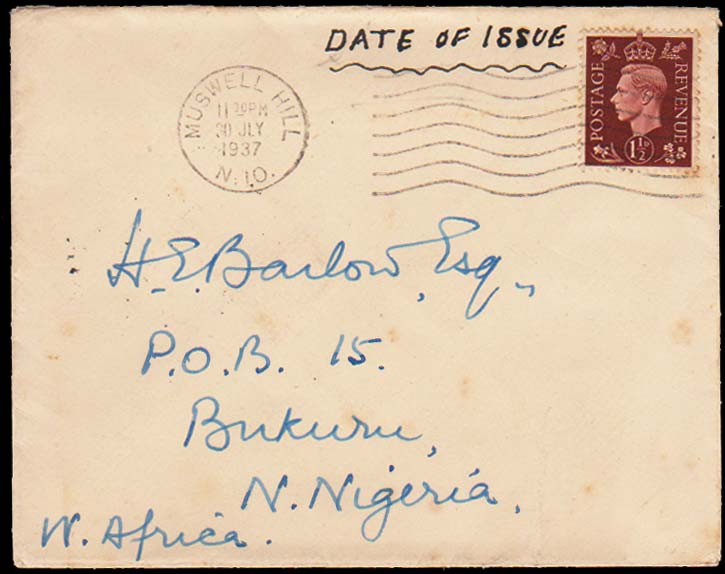 DATE OF ISSUE
POSTAGE REVENUE
1½D
MUSWELL HILL
11 30PM
30 JLY
1937
N.10.
H. E. Barlow, Esq.,
P.O.B. 15.
Bukuru,
N. Nigeria,
W. Africa.